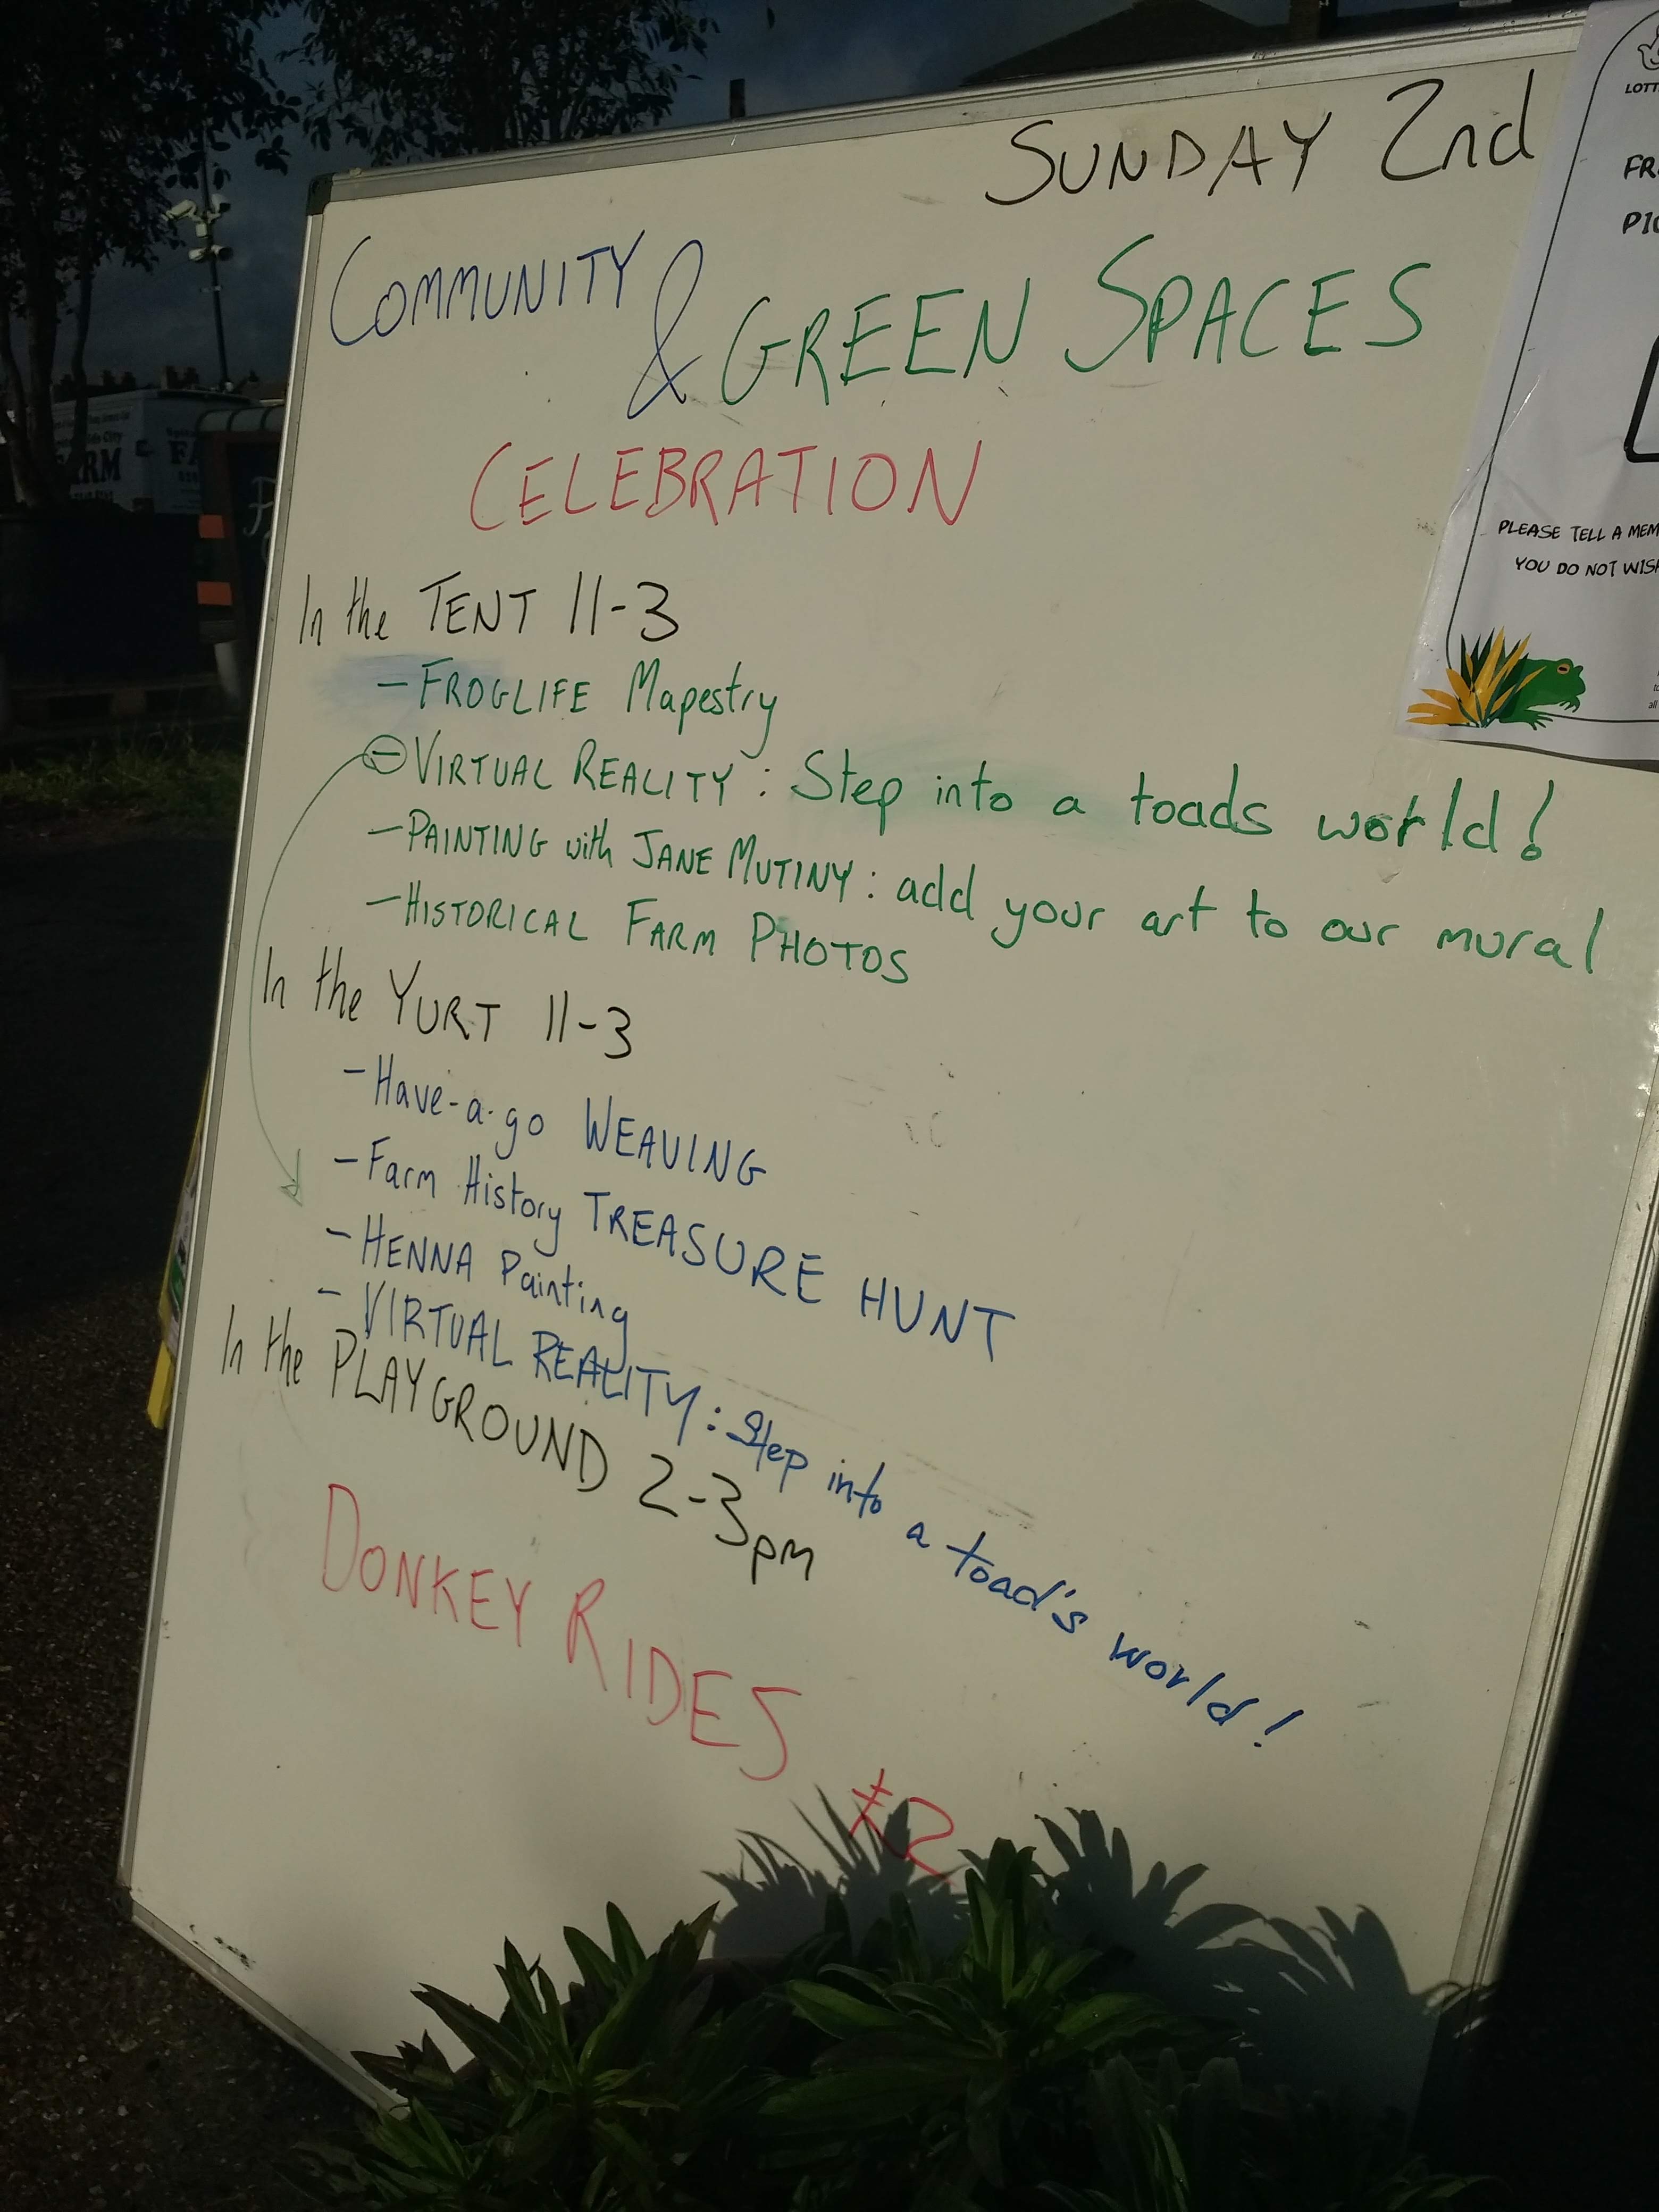 SUNDAY 2nd
COMMUNITY & GREEN SPACES
CELEBRATION
In the TENT 11-3
- FROGLIFE Mapestry
- VIRTUAL REALITY: Step into a toads world!
- PAINTING with JANE MUTINY: add your art to our mural
- HISTORICAL FARM PHOTOS
In the YURT 11-3
- Have-a-go WEAVING
- Farm History TREASURE HUNT
- HENNA Painting
- VIRTUAL REALITY: Step into a toad's world!
In the PLAYGROUND 2-3pm
DONKEY RIDES £2
PLEASE TELL A
YOU DO NOT